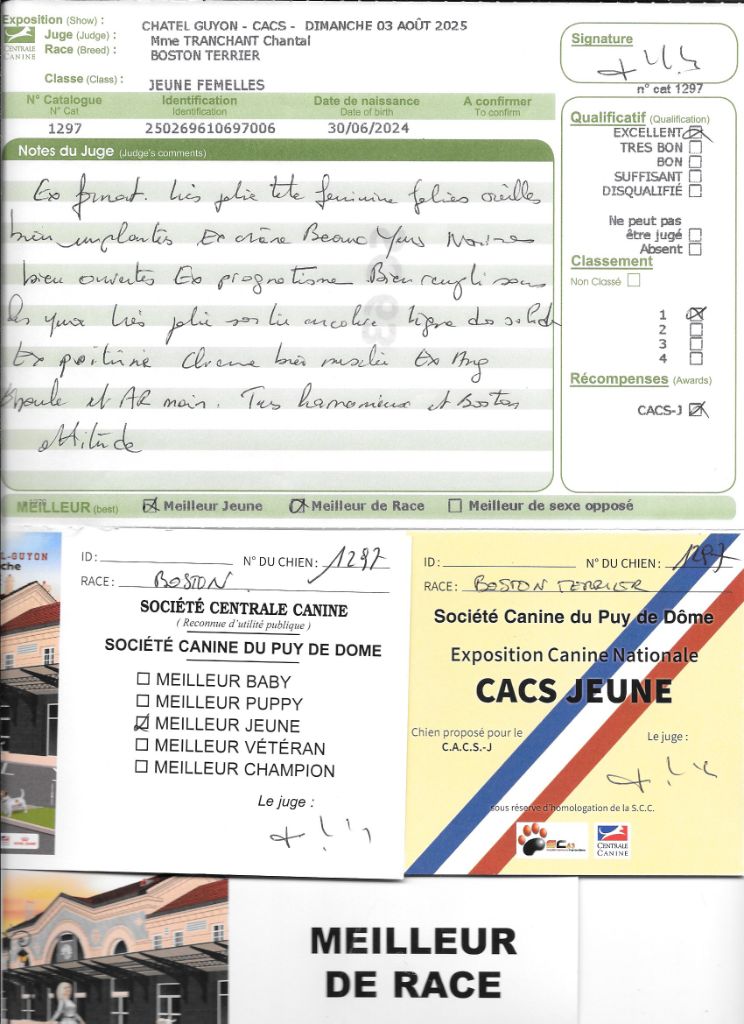 Exposition (Show) : CHATEL GUYON - CACS - DIMANCHE 03 AOÛT 2025
Juge (Judge) : Mme TRANCHANT Chantal
Race (Breed) : BOSTON TERRIER
CENTRALE CANINE
Classe (Class) : JEUNE FEMELLES
Signature
n° cat 1297
N° Catalogue Identification Date de naissance A confirmer
N° Cat Identification Date of birth To confirm
1297 250269610697006 30/06/2024
Notes du Juge (Judge's comments)
Ex format. très jolie tête féminine jolies oreilles
bien implantées Ex crâne Beaux Yeux Noirs
bien ouvertes Ex prognatisme Bien rempli sous
les yeux très jolie sortie encolure ligne dos solide
Ex poitrine bien musclée Ex Ang
Epaule et AR main. Très harmonieux et Boston
attitude
Qualificatif (Qualification)
EXCELLENT
TRES BON
BON
SUFFISANT
DISQUALIFIÉ
Ne peut pas
être jugé
Absent
Classement
Non Classé
1
2
3
4
Récompenses (Awards)
CACS-J
MEILLEUR (best) Meilleur Jeune Meilleur de Race Meilleur de sexe opposé
L-GUYON
che
ID : N° DU CHIEN : 1297
RACE : BOSTON
SOCIÉTÉ CENTRALE CANINE
( Reconnue d'utilité publique )
SOCIÉTÉ CANINE DU PUY DE DOME
MEILLEUR BABY
MEILLEUR PUPPY
MEILLEUR JEUNE
MEILLEUR VÉTÉRAN
MEILLEUR CHAMPION
Le juge :
ID : N° DU CHIEN : 1297
RACE : BOSTON TERRIER
Société Canine du Puy de Dôme
Exposition Canine Nationale
CACS JEUNE
Chien proposé pour le
C.A.C.S.-J
Le juge :
sous réserve d'homologation de la S.C.C.
CENTRALE
CANINE
MEILLEUR
DE RACE